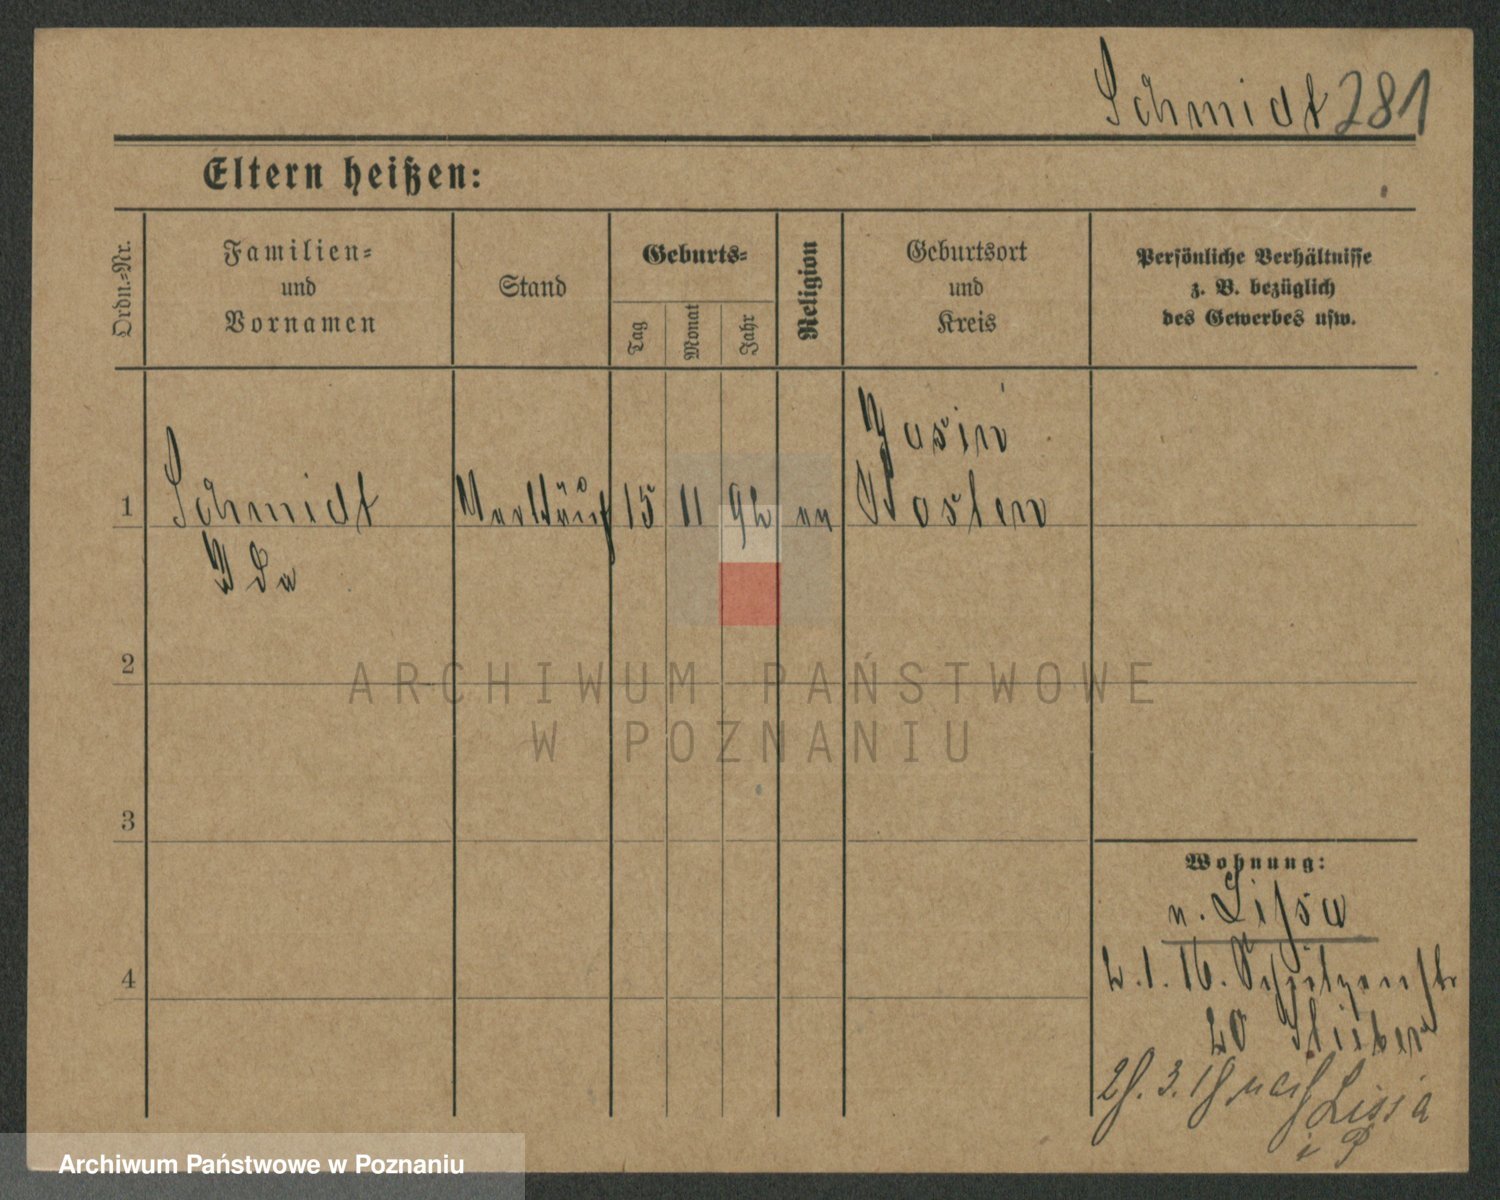 Schmidt 281
Eltern heißen:
Ordn.=Nr.
Familien=
und
Vornamen
Stand
Geburts=
Tag
Monat
Jahr
Religion
Geburtsort
und
Kreis
Persönliche Verhältnisse
z. B. bezüglich
des Gewerbes usw.
1
Schmidt
Ida
15 11 92
Kosten
2
3
4
Wohnung:
Lissa
2. 1. 16. Schützenstr
20
28. 3. 18 nach Lissa
i P
ARCHIWUM PAŃSTWOWE
W POZNANIU
Archiwum Państwowe w Poznaniu